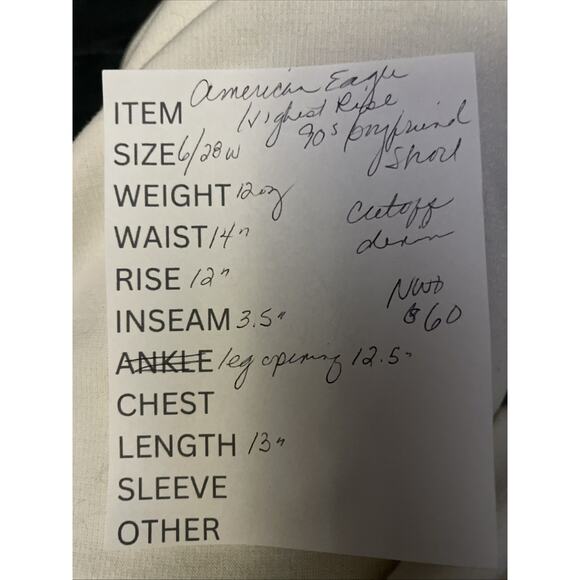 ITEM American Eagle
Highest Rise
SIZE 6/28W 90s boyfriend
Short
WEIGHT 12oz
cutoff
WAIST 14"
denim
RISE 12"
NWT
INSEAM 3.5" $60
ANKLE leg opening 12.5"
CHEST
LENGTH 13"
SLEEVE
OTHER